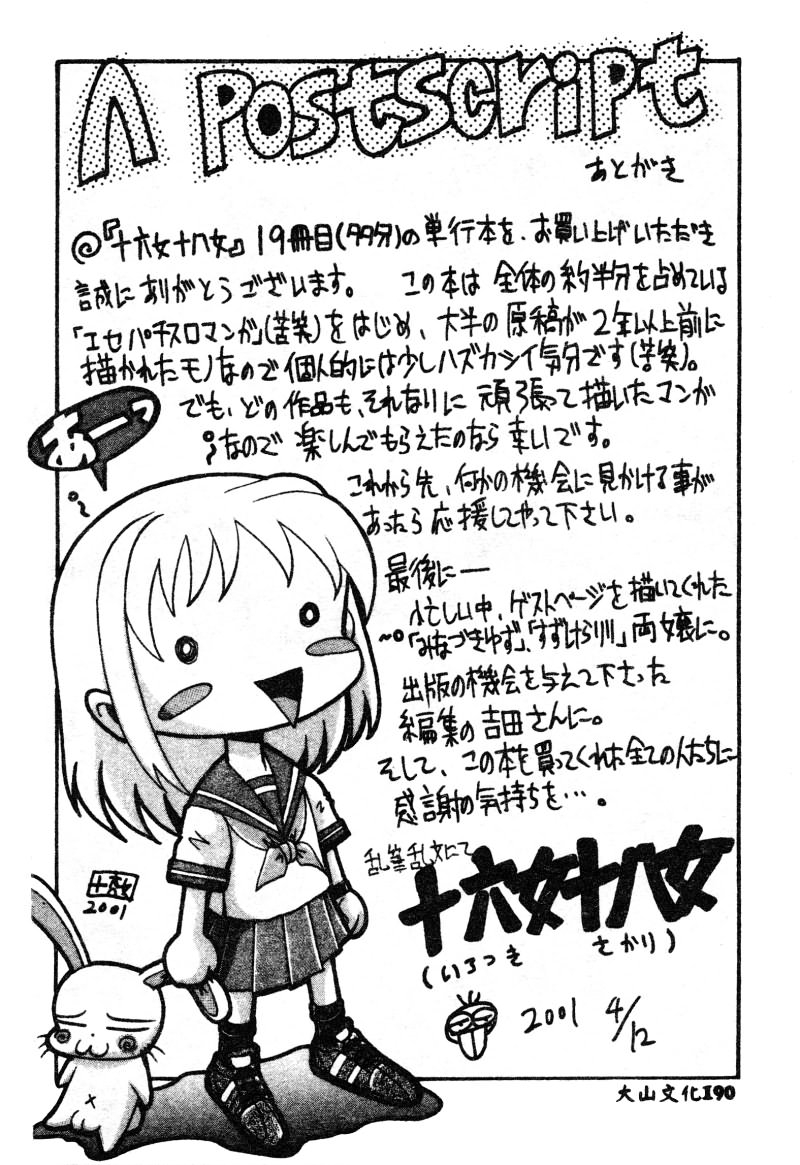 A Postscript
あとがき
◎『十六女十八女』19冊目(タタ分)の単行本を、お買い上げいただき
誠にありがとうございます。 この本は 全体の約半分を占めている
「エセパチスロマンガ」(苦笑)をはじめ、大半の原稿が2年以上前に
描かれたモノなので個人的には少しハズカシイ気分です(苦笑)。
でも、どの作品も、それなりに頑張って描いたマンガ
なので 楽しんでもらえたのなら幸いです。
あーっ
これから先、何かの機会に見かける事が
あったら応援してやって下さい。
最後にー
忙しい中、ゲストページを描いてくれた
「みなづきゆず」、「すずけらりり」両嬢に。
出版の機会を与えて下さった
編集の吉田さんに。
そして、この本を買ってくれた全ての人たちに
感謝の気持ちを…。
乱筆乱文にて
十六女十八女
(いろつき さかり)
2001 4/12
2001
大山文化I90